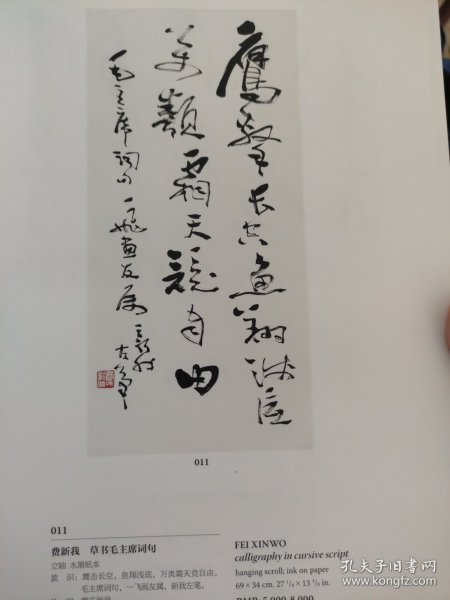 鹰击长空鱼翔浅底
万类霜天竞自由
毛主席词句 一飞画友属 新我
左笔
011
011
费新我 草书毛主席词句
立轴 水墨纸本
款 识：鹰击长空，鱼翔浅底，万类霜天竞自由。
毛主席词句，一飞画友属，新我左笔。
FEI XINWO
calligraphy in cursive script
hanging scroll; ink on paper
69 × 34 cm. 27 1/8 × 13 3/8 in.
RMB: 5,000-8,000
孔夫子旧书网